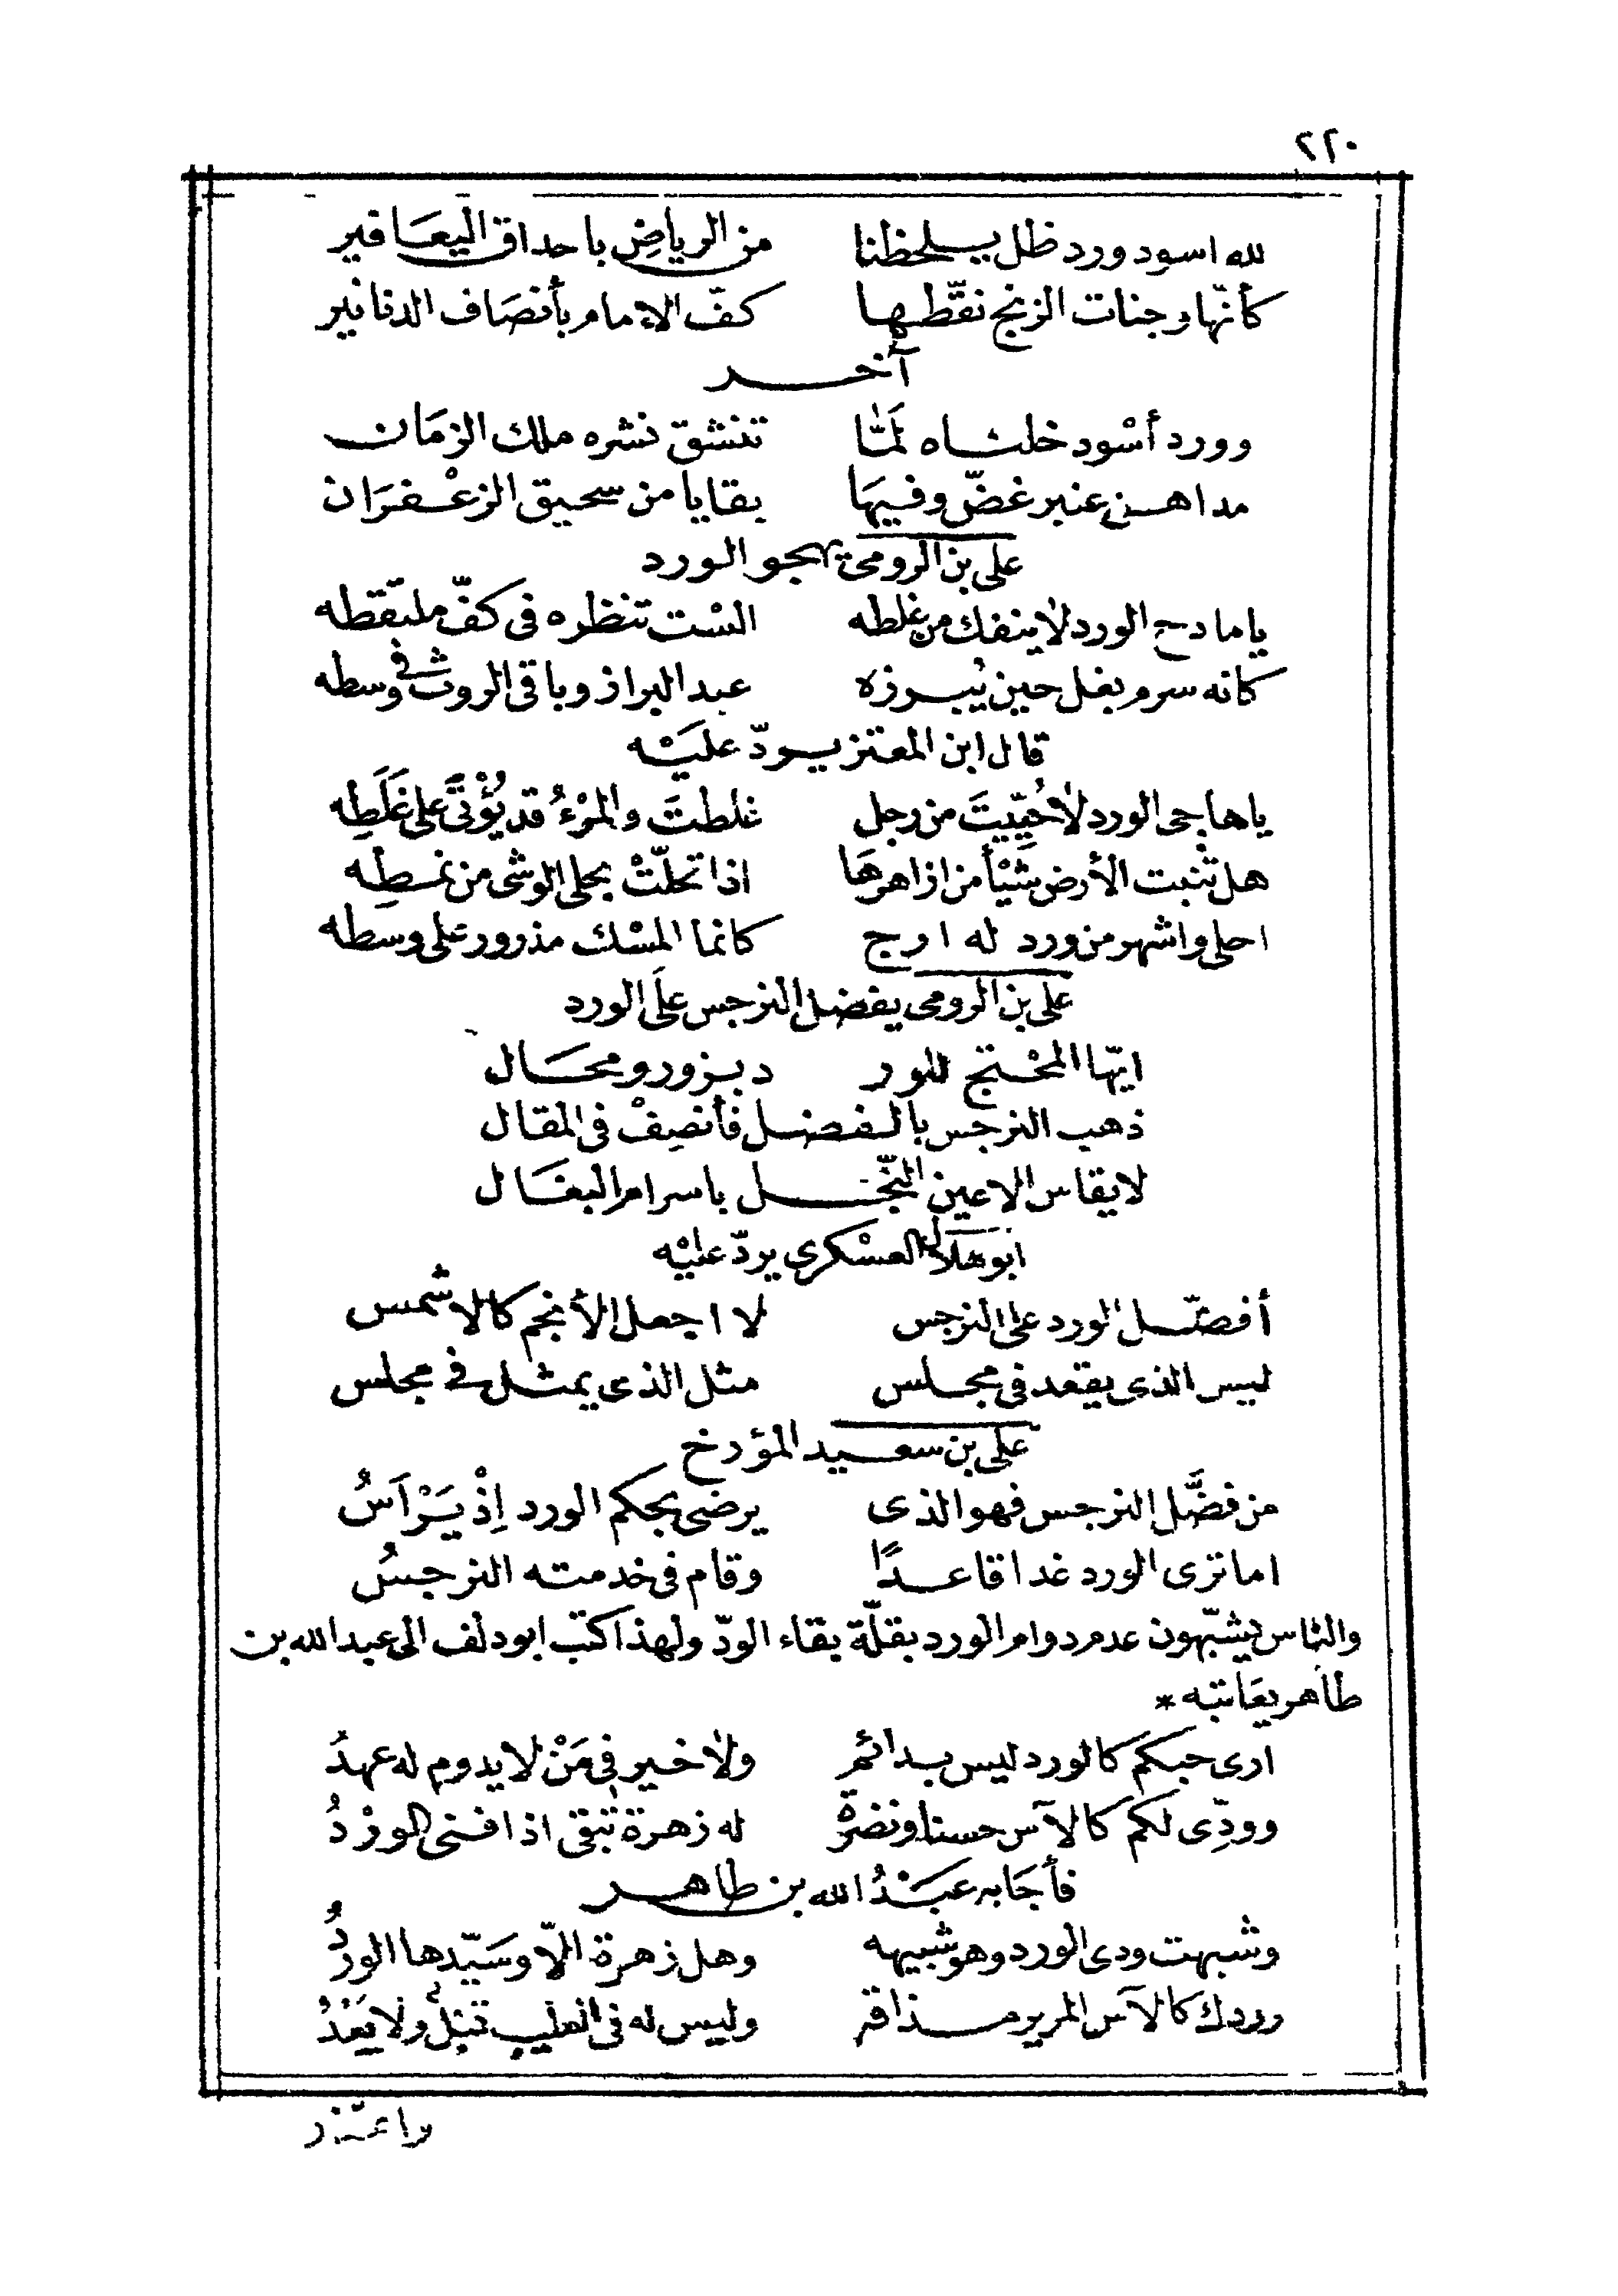 ٢٢٠
لله اسود ورد ظل يلحظنا من الرياض باحداق اليعافير
كأنّها وجنات الزنج نقّطها كفّ الامام بأنصاف الدنانير
آخر
وورد أسْود خلناه لَمّا تنشق نشره ملك الزمَان
مداهن عنبر غضّ وفيهَا بقايا من سحيق الزعْفرَان
على بن الرومى يهجو الورد
يا مادح الورد لا ينفك من غلطه الست تنظره فى كفّ ملتقطه
كانه سرم بغل حين يُبرزه عبد البراز وباقى الروث فى وسطه
قال ابن المعتز يردّ عليْه
يا هاجى الورد لا حُيّيتَ من رجل غلطتَ والمرْءُ قد يُؤْتَى على غَلَطِه
هل تنبت الأرض شيْأ من ازاهرهَا اذا تحلّتْ بحلى الوشى من نمطِه
احلى واشهر من ورد له ارج كانما المسْك مذرور على وسطه
على بن الرومى يفضل النرجس علَى الورد
ايّها المحْتج للور د بزور ومحَال
ذهب النرجس بالفضل فأنصِفْ فى المقال
لا يقاس الاعين النّجل باسرام البغَال
ابو هلال العسْكرى يردّ عليْه
أفضّل الورد على النرجس لا اجعل الأنجم كالاشمس
ليس الذى يقعد فى مجلس مثل الذى يمثل فى مجلس
على بن سعيد المؤرخ
من فضَّل النرجس فهو الذى يرضى بحكم الورد اِذْ يَرْاَسُ
اما ترى الورد غدا قاعدًا وقام فى خدمته النرجسُ
والناس يشبّهون عدم دوام الورد بقلّة بقاء الودّ ولهذا كتب ابو دلف الى عبد الله بن
طاهر يعَاتبه *
ارى حبكم كالورد ليس بدائم ولا خير فى مَنْ لا يدوم له عهدُ
وودِّى لكم كالآس حسنا ونضرة له زهرة تبقى اذا فنى الورْدُ
فأجَابه عَبْدُ الله بن طاهر
وشبهت ودى الورد وهو شبيهه وهل زهرة الّا وسَيّدها الوردُ
وودك كالآس المرير مذاقه وليس له فى الطيب قبلُ ولا بَعْدُ